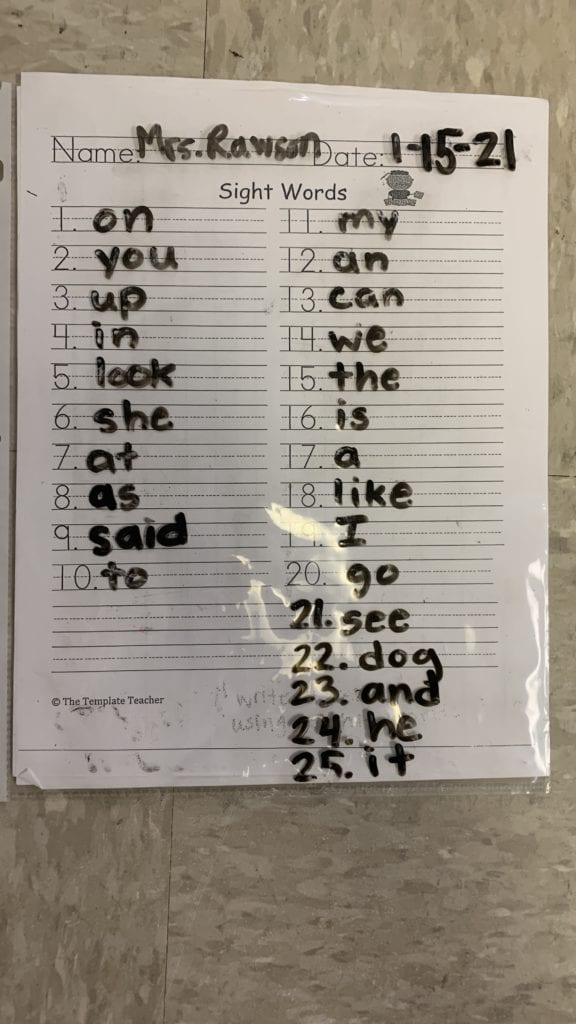 Name: Mrs. Rawson Date: 1-15-21
Sight Words
1. on
2. you
3. up
4. in
5. look
6. she
7. at
8. as
9. said
10. to
11. my
12. an
13. can
14. we
15. the
16. is
17. a
18. like
19. I
20. go
21. see
22. dog
23. and
24. he
25. it
© The Template Teacher
write
using